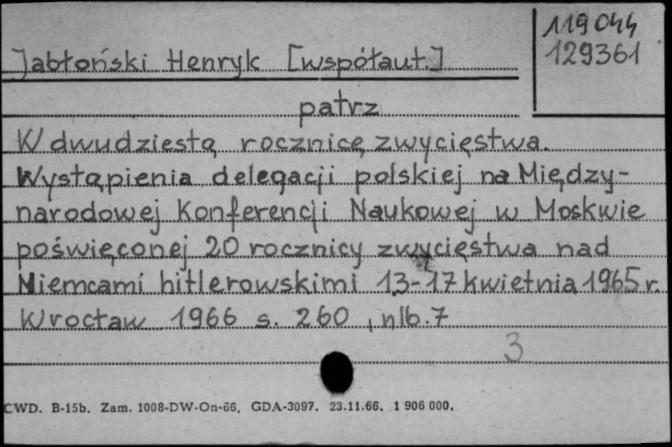 119044
129361
Jabłoński Henryk [współaut.]
patrz
W dwudziestą rocznicę zwycięstwa.
Wystąpienia delegacji polskiej na Między-
narodowej Konferencji Naukowej w Moskwie
poświęconej 20 rocznicy zwycięstwa nad
Niemcami hitlerowskimi 13-17 kwietnia 1965 r.
Wrocław 1966 s. 260, nlb. 7
3
CWD. B-15b. Zam. 1008-DW-On-66. GDA-3097. 23.11.66. 1 906 000.